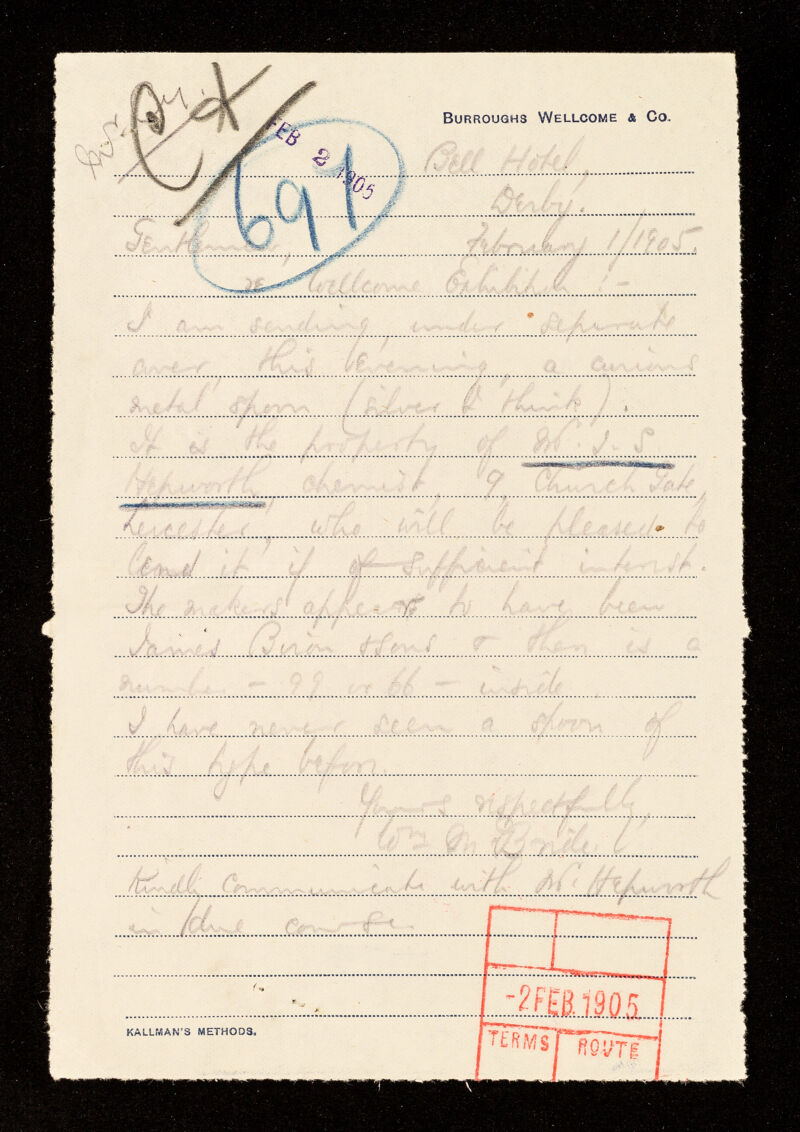 BURROUGHS WELLCOME & CO.
FEB 2 1905
697
Bell Hotel,
Derby.
Gentlemen, February 1/1905.
re Wellcome Exhibition :-
I am sending, under separate
cover, this evening, a curious
metal spoon (silver I think).
It is the property of Mr. J. S.
Hepworth, chemist, 9, Church Gate,
Leicester, who will be pleased to
lend it if of sufficient interest.
The makers appear to have been
James & Sons & there is a
number - 99 or 66 - inside.
I have never seen a spoon of
this type before.
Yours respectfully,
Wm
Kindly communicate with Mr. Hepworth
in due course.
-2 FEB. 1905
TERMS ROUTE
KALLMAN'S METHODS.